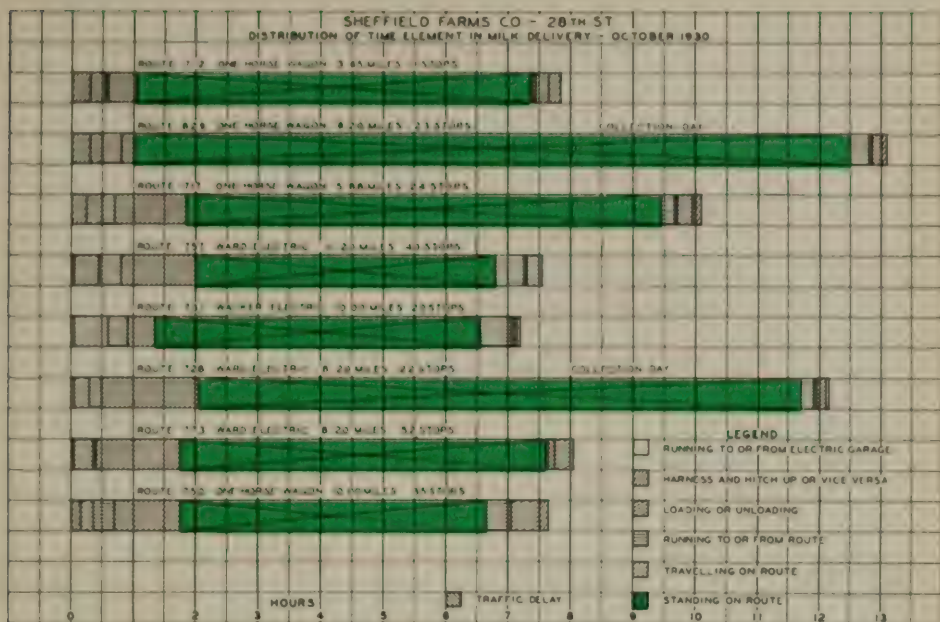 SHEFFIELD FARMS CO - 28TH ST
DISTRIBUTION OF TIME ELEMENT IN MILK DELIVERY - OCTOBER 1930
ROUTE ONE HORSE WAGON 3.85 MILES STOPS
ROUTE ONE HORSE WAGON 8.20 MILES 23 STOPS COLLECTION DAY
ROUTE ONE HORSE WAGON 5.88 MILES 24 STOPS
ROUTE WARD ELECTRIC MILES 40 STOPS
ROUTE WALKER ELECTRIC MILES STOPS
ROUTE WARD ELECTRIC MILES 22 STOPS COLLECTION DAY
ROUTE WARD ELECTRIC 8.20 MILES STOPS
ROUTE ONE HORSE WAGON MILES STOPS
LEGEND
RUNNING TO OR FROM ELECTRIC GARAGE
HARNESS AND HITCH UP OR VICE VERSA
LOADING OR UNLOADING
RUNNING TO OR FROM ROUTE
TRAVELLING ON ROUTE
HOURS TRAFFIC DELAY STANDING ON ROUTE
0 1 2 3 4 5 6 7 8 9 10 11 12 13